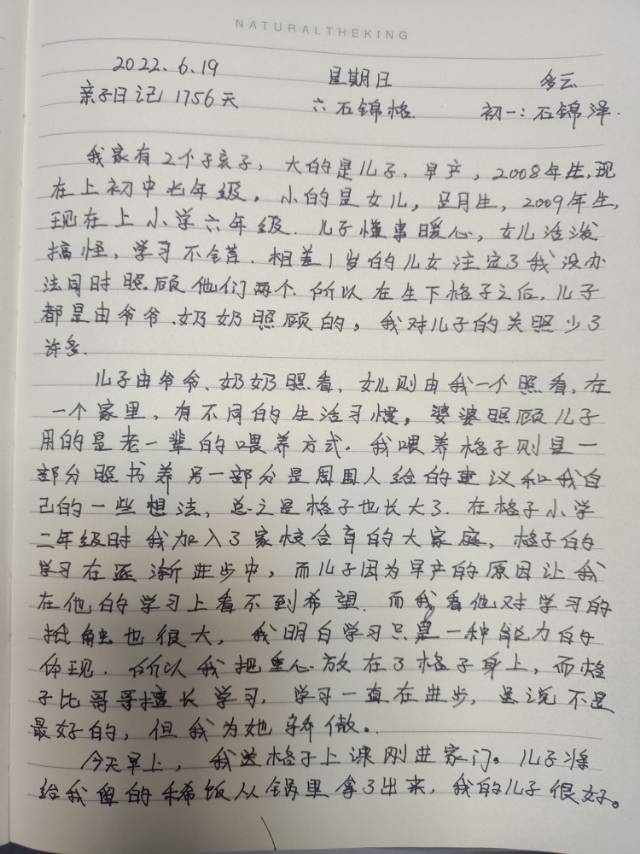 NATURALTHEKING
2022.6.19 星期日 多云
亲子日记1756天 六石锦格. 初一:石锦泽.
我家有2个子亥子,大的是儿子,早产,2008年生,现
在上初中七年级,小的是女儿,足月生,2009年生,
现在上小学六年级.儿子懂事暖心,女儿活泼
搞怪,学习不错.相差1岁的儿女注定了我没办
法同时照顾他们两个.所以在生下格子之后,儿子
都是由爷爷.奶奶照顾的,我对儿子的关照少了
许多.
儿子由爷爷、奶奶照看,女儿则由我一个照看,在
一个家里,有不同的生活习惯,婆婆照顾儿子
用的是老一辈的喂养方式.我喂养格子则是一
部分照书养另一部分是周围人给的建议和我自
己的一些想法,总之是格子也长大了.在格子小学
二年级时我加入了家校合育的大家庭,格子的
学习在逐渐进步中,而儿子因为早产的原因让我
在他的学习上看不到希望.而我看他对学习的
抵触也很大,我明白学习只是一种能力的
体现.所以我把重心放在了格子身上,而格
子比哥哥擅长学习,学习一直在进步,虽说不是
最好的,但我为她骄傲。
今天早上,我送格子上课刚进家门。儿子将
给我留的稀饭从锅里拿了出来,我的儿子很好。